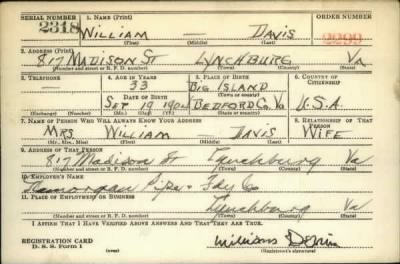 SERIAL NUMBER 1. NAME (Print) ORDER NUMBER
2318 WILLIAM — DAVIS 2299
(First) (Middle) (Last)
2. ADDRESS (Print)
817 MADISON ST LYNCHBURG VA
(Number and street or R. F. D. number) (Town) (County) (State)
3. TELEPHONE 4. AGE IN YEARS 5. PLACE OF BIRTH 6. COUNTRY OF CITIZENSHIP
— 33 BIG ISLAND
DATE OF BIRTH (Town or county)
SEP 19 BEDFORD CO. VA U.S.A.
(Exchange) (Number) (Mo.) (Day) (Yr.) (State or country)
7. NAME OF PERSON WHO WILL ALWAYS KNOW YOUR ADDRESS 8. RELATIONSHIP OF THAT PERSON
MRS WILLIAM — DAVIS WIFE
(Mr., Mrs., Miss) (First) (Middle) (Last)
9. ADDRESS OF THAT PERSON
817 Madison St Lynchburg Va
(Number and street or R. F. D. number) (Town) (County) (State)
10. EMPLOYER'S NAME
Glamorgan Pipe & Fdy Co
11. PLACE OF EMPLOYMENT OR BUSINESS
Lynchburg Va
(Number and street or R. F. D. number) (Town) (County) (State)
I AFFIRM THAT I HAVE VERIFIED ABOVE ANSWERS AND THAT THEY ARE TRUE.
REGISTRATION CARD
D. S. S. Form 1 (Registrant's signature)